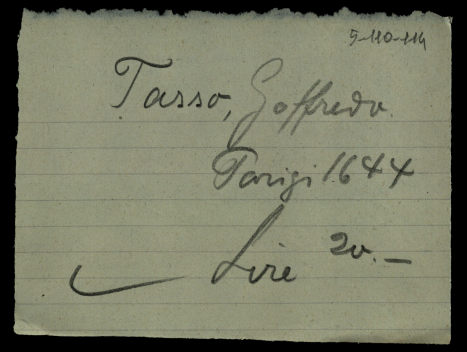 5-110-114
Tasso, Goffredo.
Parigi 1644
Lire 20.—